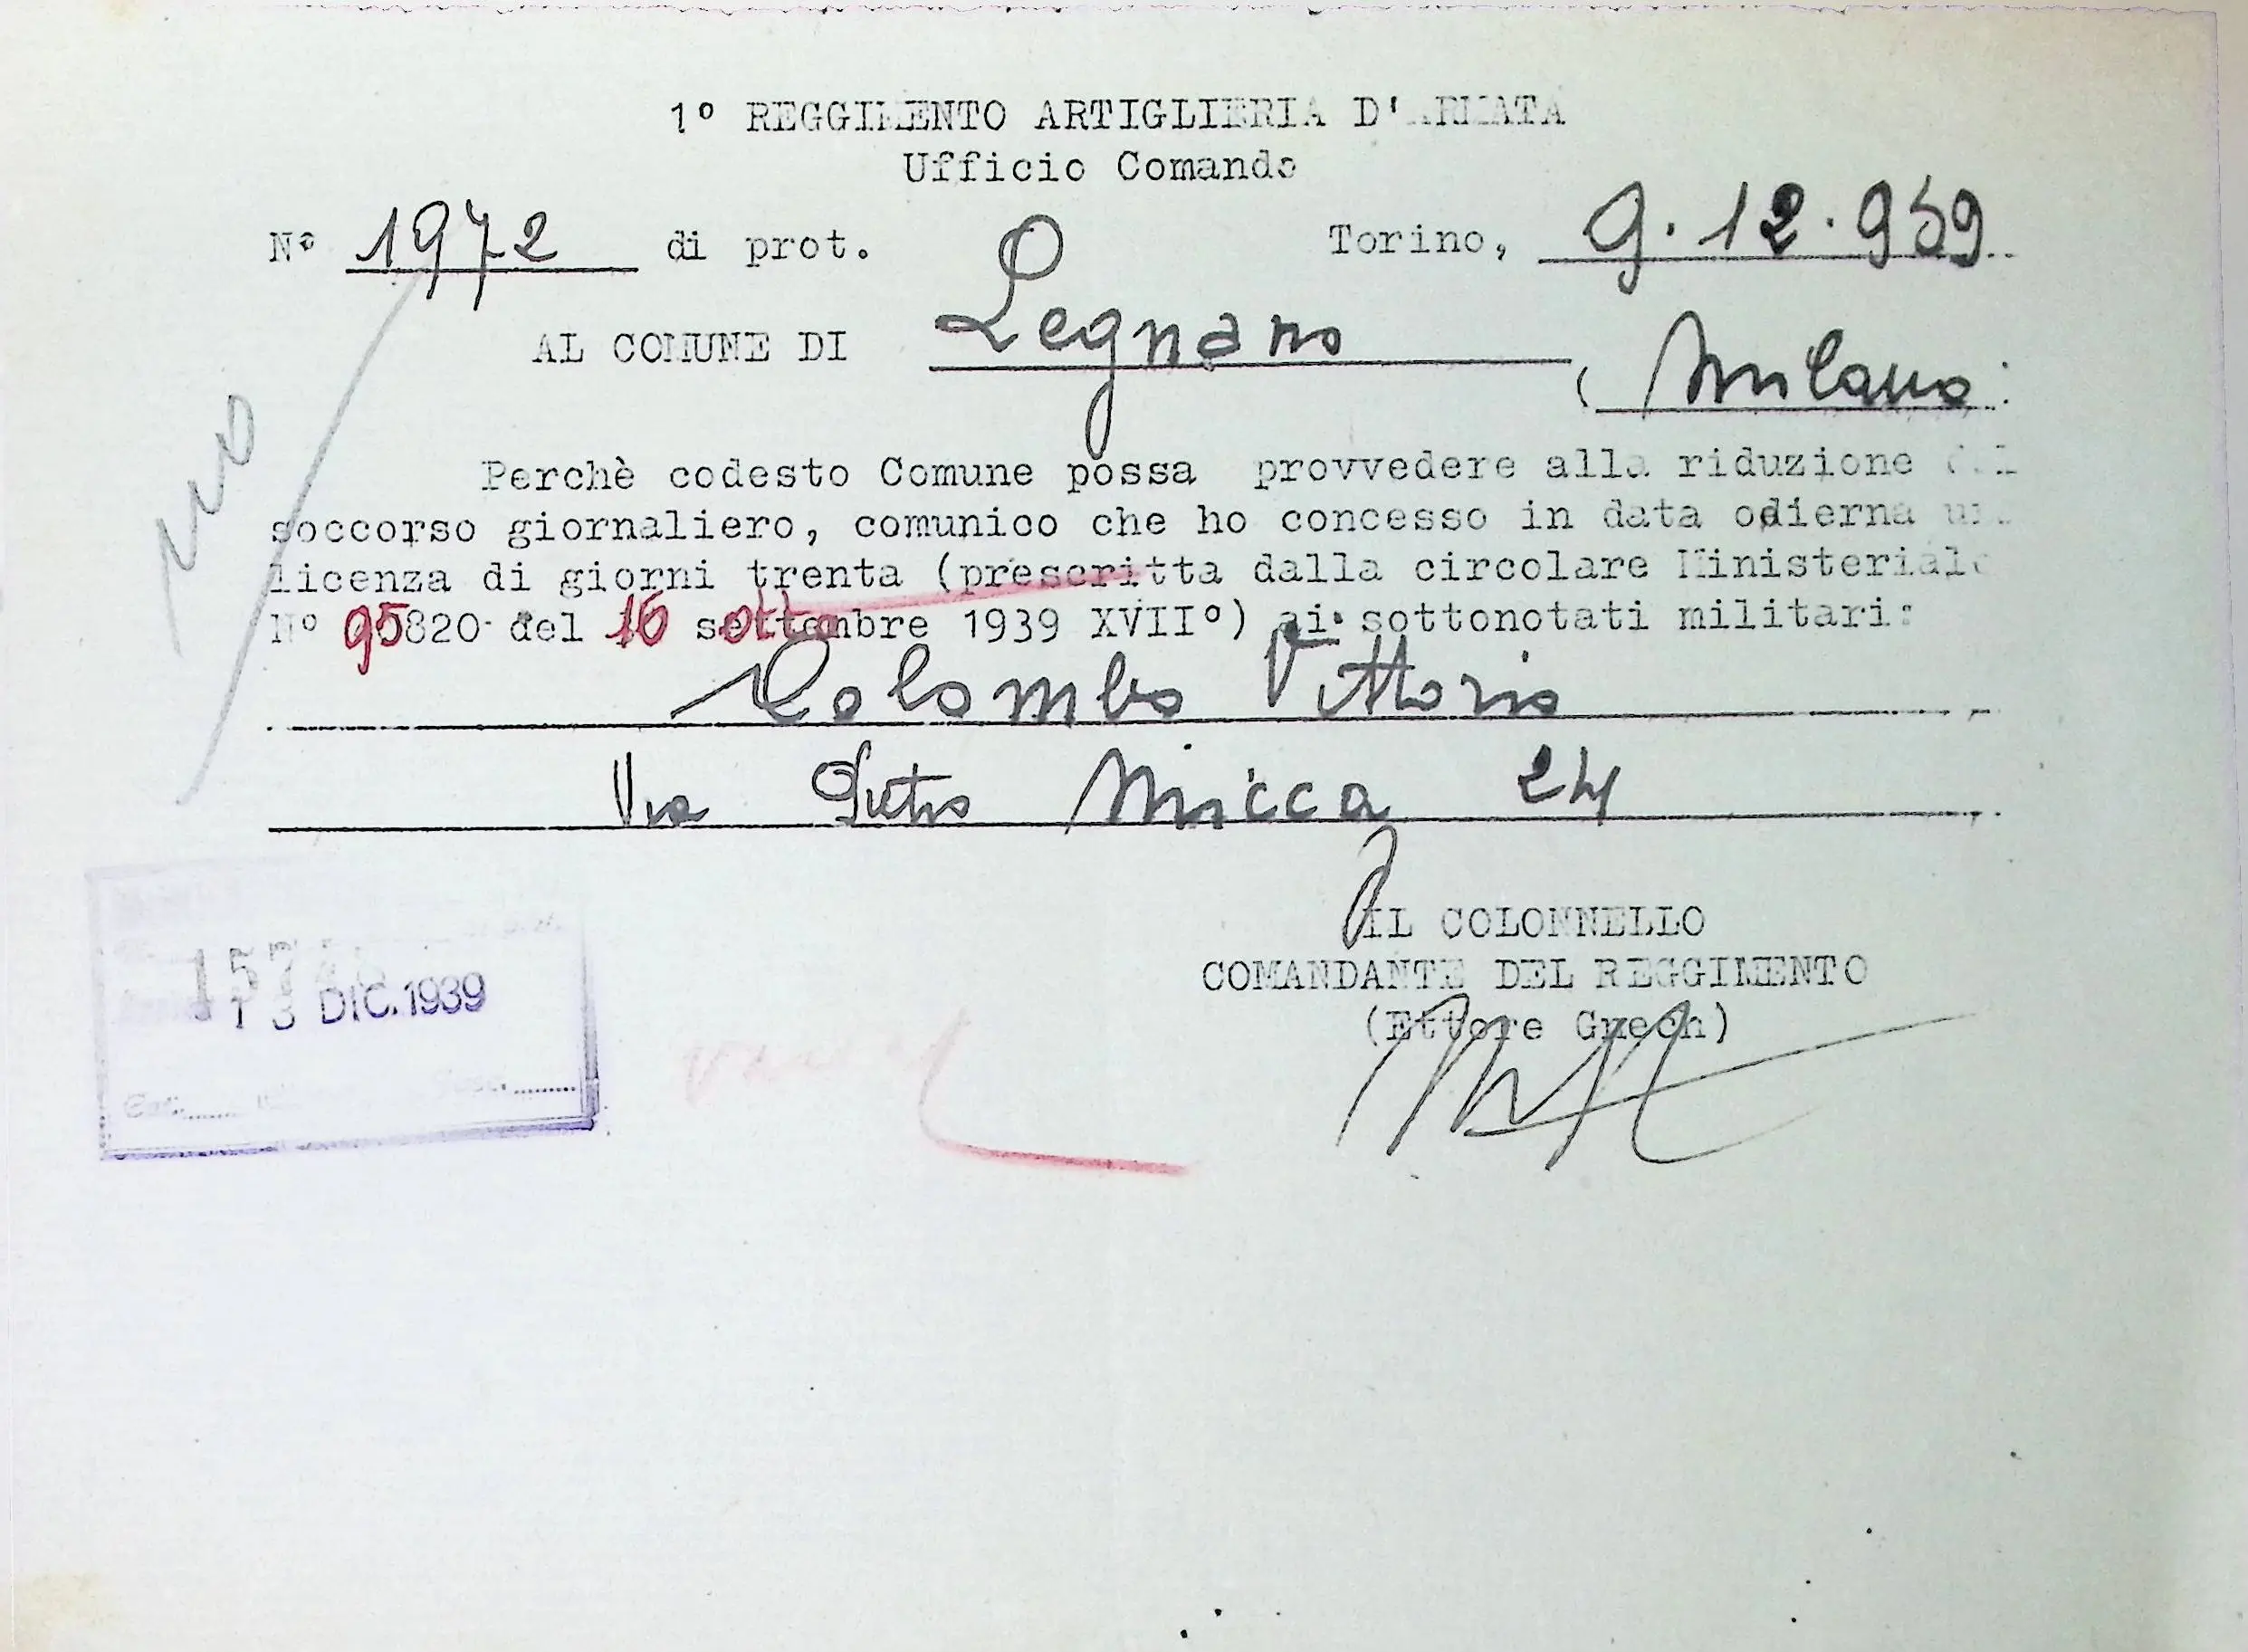 1° REGGIMENTO ARTIGLIERIA D'ARMATA
Ufficio Comando
N° 1972 di prot. Torino, 9.12.939
AL COMUNE DI Legnano
( Milano
Perchè codesto Comune possa provvedere alla riduzione del
soccorso giornaliero, comunico che ho concesso in data odierna un
licenza di giorni trenta (prescritta dalla circolare Ministeriale
N° 95820 del 16 settembre 1939 XVII°) ai sottonotati militari:
Colombo Vittorio
Via Pietro Micca 24
IL COLONNELLO
COMANDANTE DEL REGGIMENTO
(Ettore Grech)
13 DIC. 1939